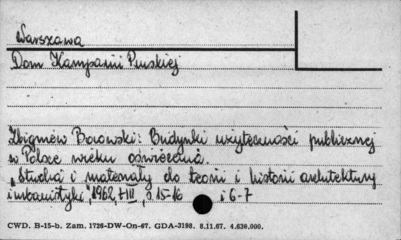 Warszawa
Dom Kampanii Pruskiej
Zbigniew Borowski: Budynki użyteczności publicznej
w Polsce wieku oświecenia.
"Studia i materiały do teorii i historii architektury
i urbanistyki," 1962, t III, s 15-16 i 6-7
CWD. B-15-b. Zam. 1726-DW-On-67. GDA-3198. 8.11.67. 4.630.000.